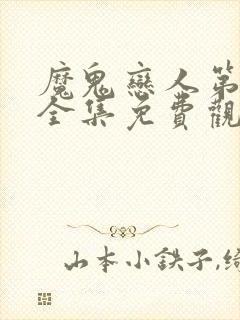 魔鬼戀人第
全集免費觀
山本小鉄子,